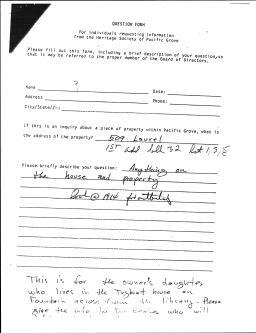 QUESTION FORM
For individuals requesting information
from the Heritage Society of Pacific Grove
Please fill out this form, including a brief description of your question, so
that it may be referred to the proper member of the Board of Directors.
Name ? Date:
Address Phone:
City/State/Zip:
If this is an inquiry about a piece of property within Pacific Grove, what is
the address of the property? 509 Laurel
1st Add Blk 32 Lot 1, 3, 5
Please briefly describe your question: Anything on
the house and property
@ 1914
This is for the owner's daughter
who lives in the house on
Fountain across from the library. Please
give the info to who will